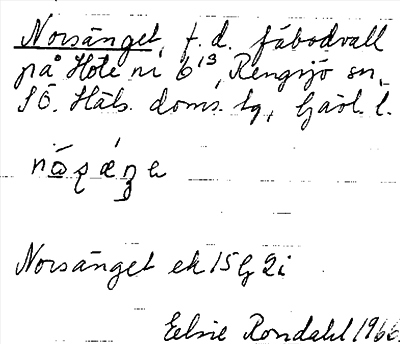 Norsänget, f.d. fäbodvall
på Hote nr 6¹³, Rengsjö sn,
SÖ. Häls. doms. tg, Gävl. l.
Norsänget ek 15G 2i
Elsie Rondahl 1966